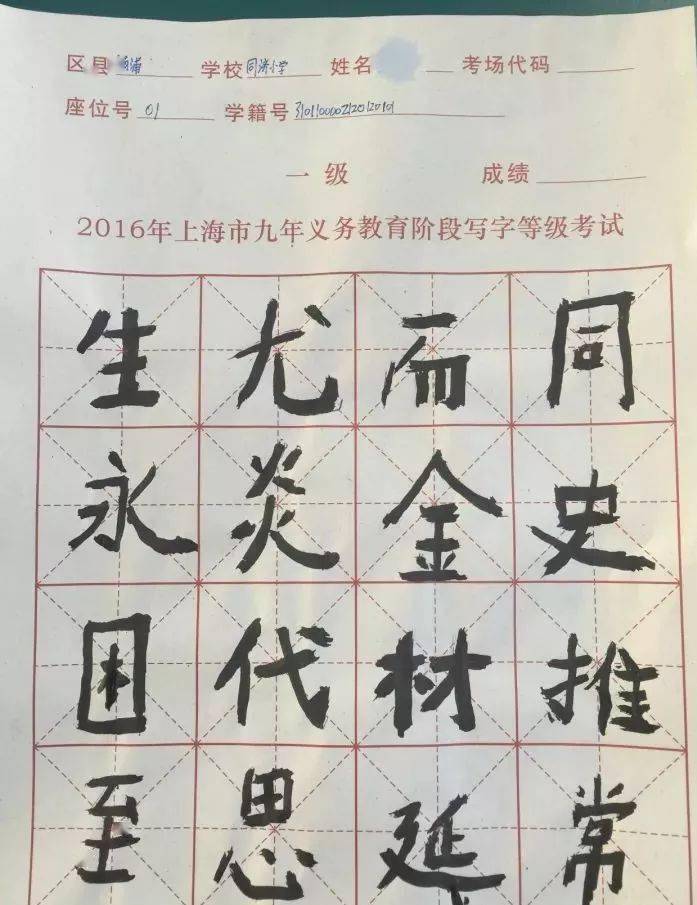 区县 黄浦 学校 同济小学 姓名 考场代码
座位号 01 学籍号
一级 成绩
2016年上海市九年义务教育阶段写字等级考试
生尤而同
永炎金史
困代材推
至思延常